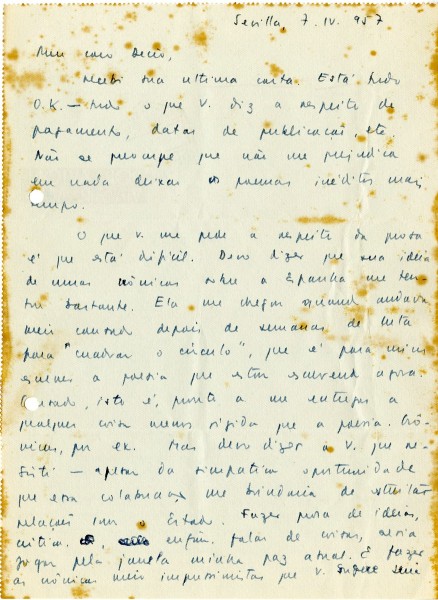 Sevilla, 7. IV. 957
Meu caro Decio,
recebi sua última carta. Está tudo
O.K. — tudo o que V. diz a respeito de
pagamento, datas de publicação, etc.
Não se preocupe que não me prejudica
em nada deixar os poemas inéditos mais
tempo.
O que V. me pede a respeito da prosa
é que está difícil. Devo dizer que sua idéia
de umas crônicas sobre a Espanha me ten-
tou bastante. Ela me chegou quando andava
meio cansado depois de semanas de luta
para "cuadrar o círculo", que é para mim
a poesia que estou escrevendo agora.
Cansado, isto é, pronto a me entregar a
qualquer coisa menos rígida que a poesia. Crô-
nicas, por ex. Mas devo dizer a V. que re-
sisti — apesar da simpática oportunidade
que essa colaboração me brindaria de estreitar
relações com o Estado. Fazer prosa de idéias,
crítica, enfim, falar de coisas, seria
jogar pela janela minha paz atual. E fazer
as crônicas meio impressionistas que V. sugere seria